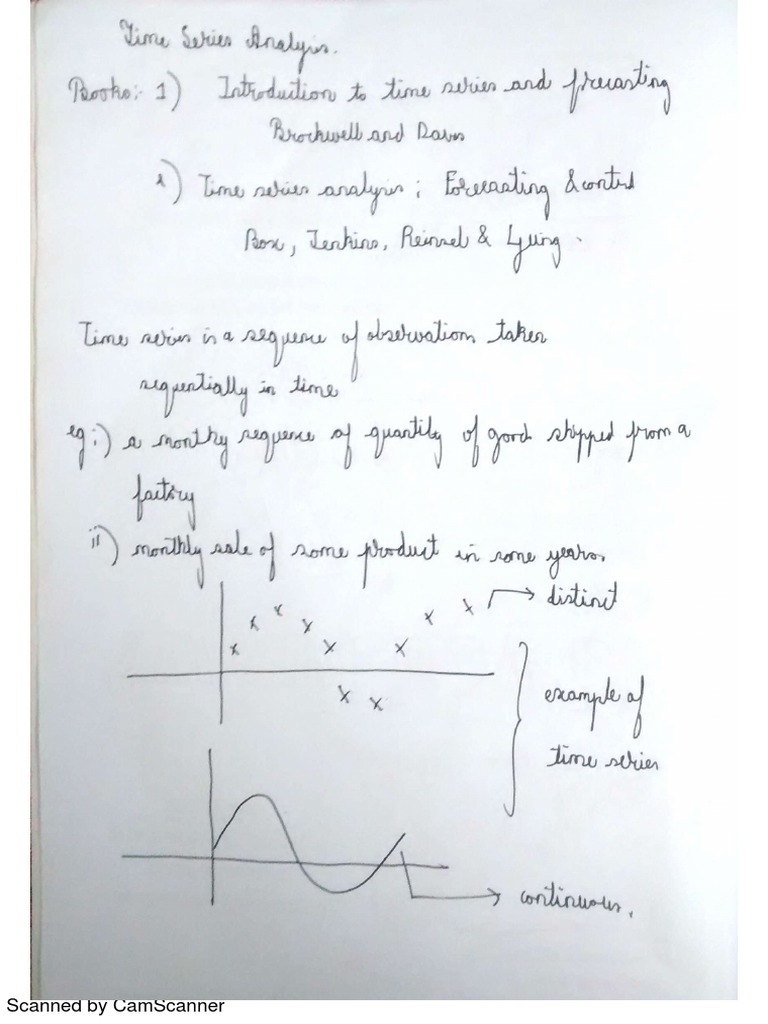 Time Series Analysis.
Books:- 1) Introduction to time series and frecasting
Brockwell and Davis
2) Time series analysis; Forecasting & control
Box, Jenkins, Reinsel & Ljung.
Time series is a sequence of observations taken
sequentially in time
eg:i) a monthy sequence of quantity of good shipped from a
factory
ii) monthly sale of some product in some years.
distinct
example of
time series
continuous.
Scanned by CamScanner